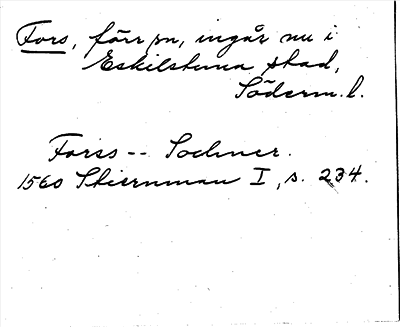 Fors, förr sn, ingår nu i
Eskilstuna stad,
Söderm. l.
Forss -- Sochner.
1560 Stiernman I, s. 234.